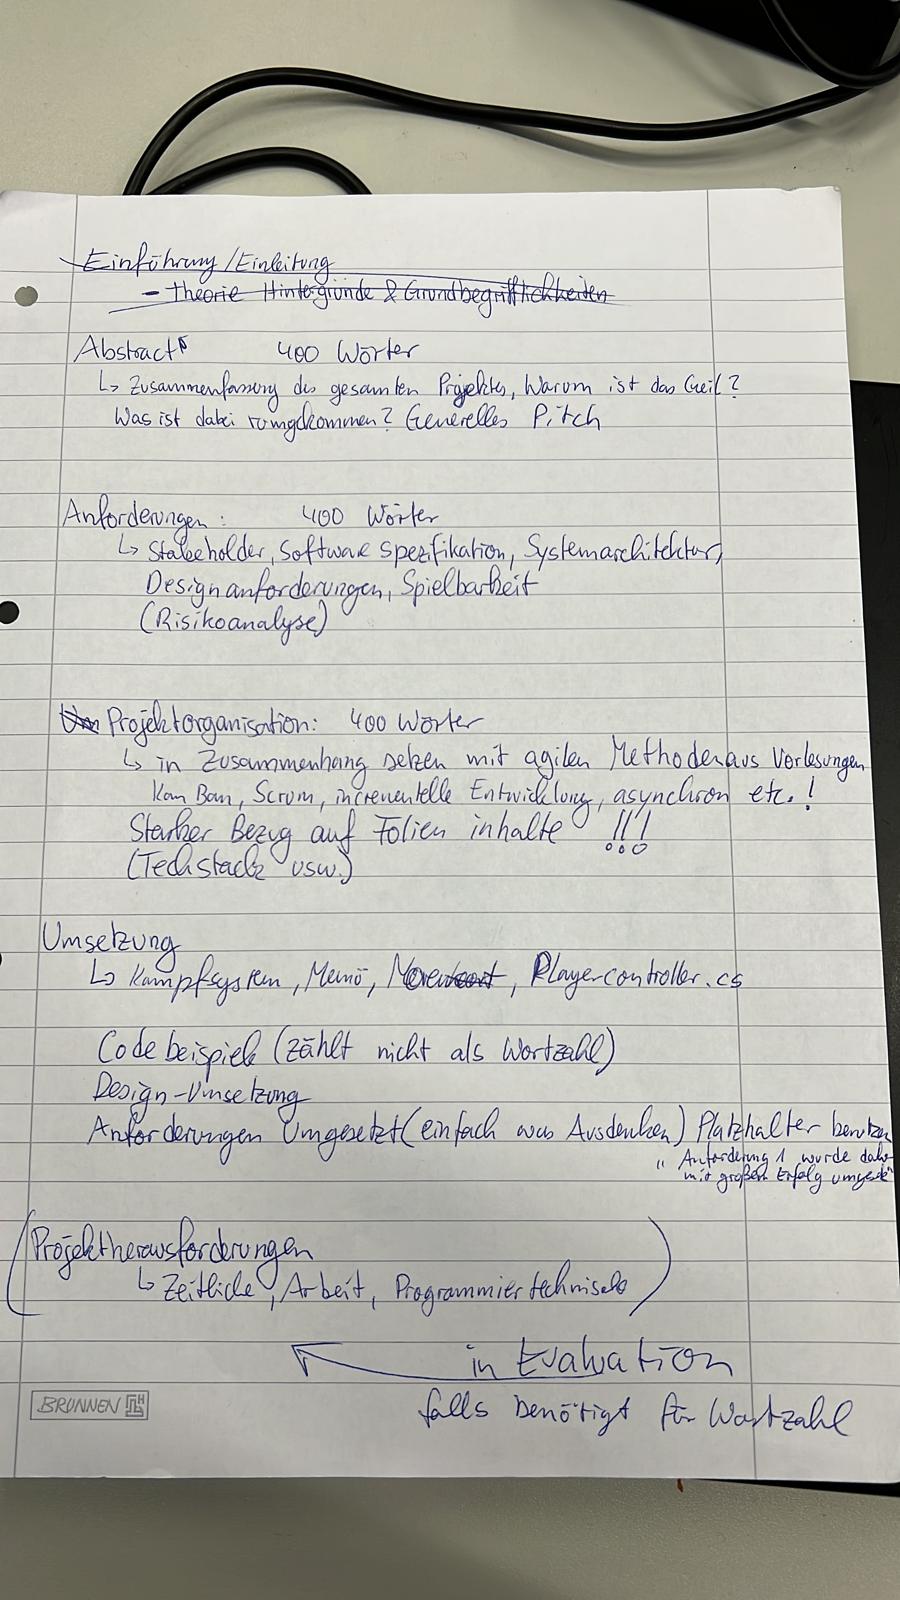 Einführung/Einleitung
- Theorie Hintergründe & Grundbegrifflichkeiten
Abstract 400 Wörter
↳ Zusammenfassung des gesamten Projektes, Warum ist das Geil?
Was ist dabei rumgekommen? Generelles Pitch
Anforderungen: 400 Wörter
↳ Stakeholder, Software spezifikation, Systemarchitektur,
Designanforderungen, Spielbarkeit
(Risikoanalyse)
Projektorganisation: 400 Wörter
↳ in Zusammenhang setzen mit agilen Methoden aus Vorlesungen
Kan Ban, Scrum, incrementelle Entwicklung, asynchron etc.!
Starker Bezug auf Folien inhalte !!!
(Techstack usw.)
Umsetzung
↳ Kampfsystem, Menü, Movement, Playercontroller.cs
Code beispiele (zählt nicht als Wortzahl)
Design-Umsetzung
Anforderungen Umgesetzt (einfach was Ausdenken) Platzhalter benutzen
"Anforderung 1 wurde dabei
mit großem Erfolg umgesetzt"
(Projektherausforderungen
↳ Zeitliche, Arbeit, Programmiertechnische)
in Evaluation
falls benötigt für Wortzahl
BRUNNEN